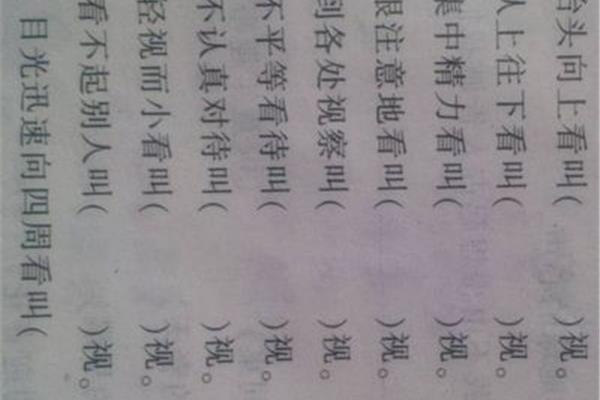 抬头向上看叫(    )视。
从上往下看叫(    )视。
集中精力看叫(    )视。
很注意地看叫(    )视。
到各处视察叫(    )视。
不平等看待叫(    )视。
不认真对待叫(    )视。
轻视而小看叫(    )视。
看不起别人叫(    )视。
目光迅速向四周看叫(